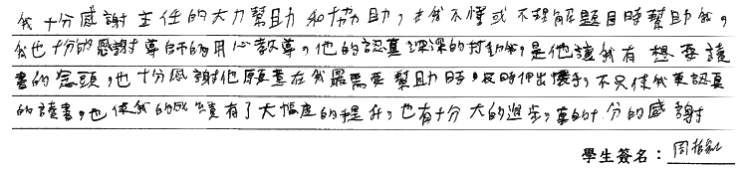 我十分感謝主任的大力幫助和協助，在我不懂或不理解題目時幫助我，
我也十分的感謝導師的用心教導，他的認真深深的打動我，是他讓我有想要讀
書的念頭，也十分感謝他願意在我最需要幫助時，及時伸出懷手，不只使我更認真
的讀書，也使我的成績有了大幅度的提升，也有十分大的進步，真的十分的感謝
學生簽名：周